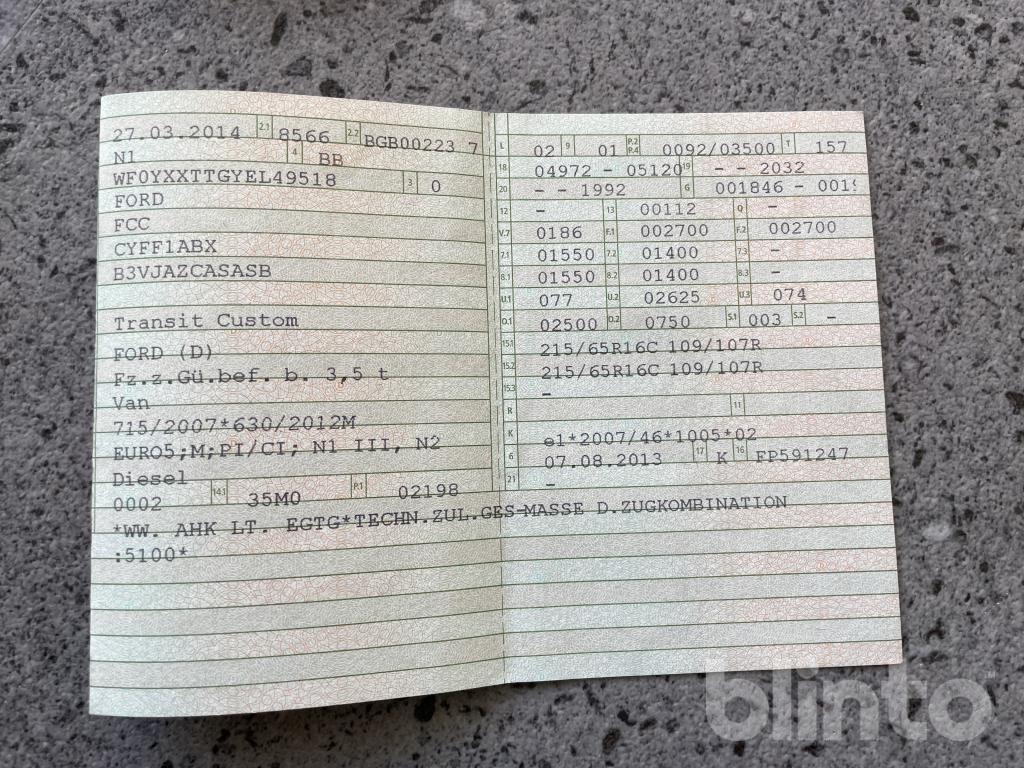 27.03.2014 2.1 8566 2.2 BGB00223 7
N1 4 BB
WF0YXXTTGYEL49518 3 0
FORD
FCC
CYFF1ABX
B3VJAZCASASB
Transit Custom
FORD (D)
Fz.z.Gü.bef. b. 3,5 t
Van
715/2007*630/2012M
EURO5;M;PI/CI; N1 III, N2
Diesel
0002 14.1 35M0 P.1 02198
*WW. AHK LT. EGTG*TECHN.ZUL.GES-MASSE D.ZUGKOMBINATION
:5100*
L 02 9 01 P.2 P.4 0092/03500 T 157
18 04972 - 05120 19 - - 2032
20 - - 1992 G 001846 - 001
12 - 13 00112 Q -
V.7 0186 F.1 002700 F.2 002700
7.1 01550 7.2 01400 7.3 -
8.1 01550 8.2 01400 8.3 -
U.1 077 U.2 02625 U.3 074
O.1 02500 O.2 0750 S.1 003 S.2 -
15.1 215/65R16C 109/107R
15.2 215/65R16C 109/107R
15.3 -
R 11
K e1*2007/46*1005*02
6 07.08.2013 17 K 16 FP591247
21 -
blinto